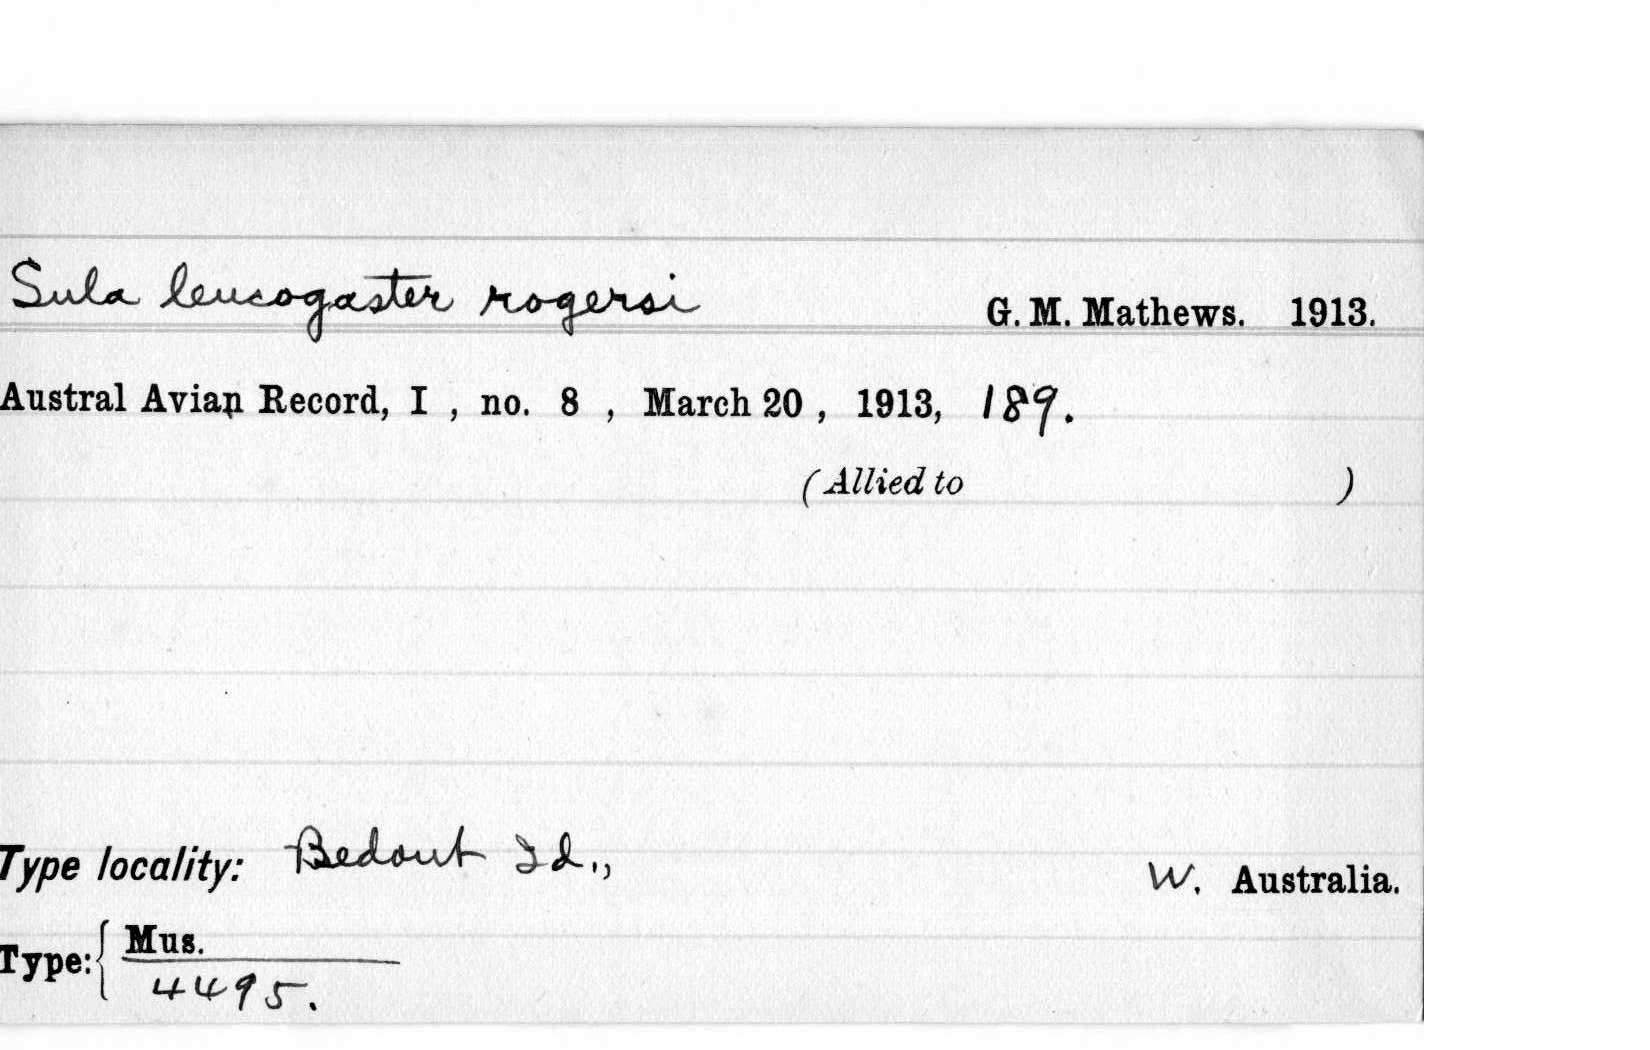 Sula leucogaster rogersi G. M. Mathews. 1913.
Austral Avian Record, I , no. 8 , March 20 , 1913, 189.
(Allied to )
Type locality: Bedout Id., W. Australia.
Type: { Mus.
4495.